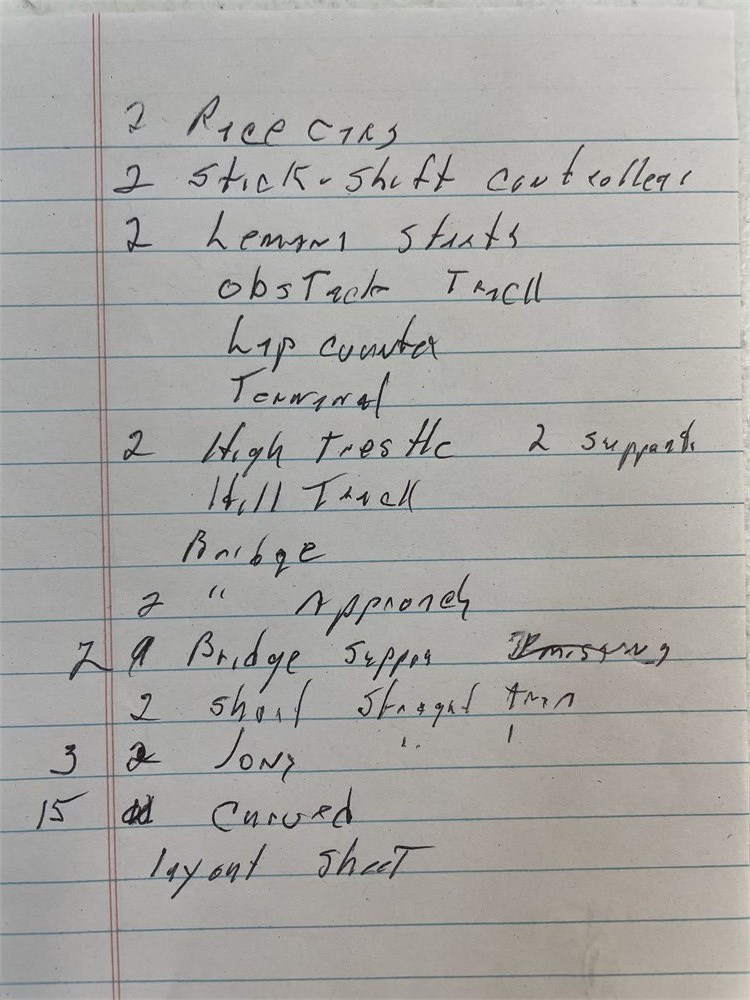 2 Race cars
2 Stick-Shift controllers
2 Lemans starts
obstacle Track
Lap counter
Terminal
2 High trestle 2 supports
Hill Track
Bridge
2 " Approach
2 Bridge suppor
2 short straight
3 long " "
15 Curved
layout sheet